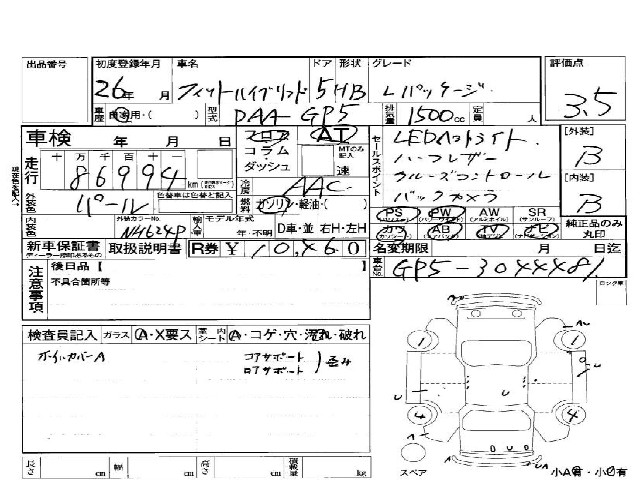 出品番号
初度登録年月 26年 月
車名 フィットハイブリッド
ドア 形状 5HB
グレード Lパッケージ
評価点 3.5
車歴 自家用・( )
型式 DAA-GP5
排気量 1500cc
定員 人
車検 年 月 日
フロア AT
コラム
ダッシュ
MTのみ記入
速
セールスポイント
LEDヘッドライト
ハーフレザー
クルーズコントロール
バックカメラ
[外装] B
[内装] B
走行 十 万 千 百 十 一
86994 km
外装色 パール
色替車は色替と記入
冷房 AAC
燃料 ガソリン・軽油・( )
内装色
外装カラーNo. NH624P
輸入車
モデル年式 年・不明
D車・並 右H・左H
PS PW AW SR
カワ AB TV ナビ
純正品のみ丸印
新車保証書 取扱説明書 R券 ¥10,460
名変期限 月 日迄
注意事項
後日品【 】
不具合箇所等
車台No. GP5-3044481
検査員記入 ガラス A・X要ス 室内シート A・コゲ・穴・汚れ・破れ
ホイルカバーA
コアサポート
ロアサポート 歪み
長さ cm 幅 cm 高さ cm 積載量 kg
スペア
小A有・小U有